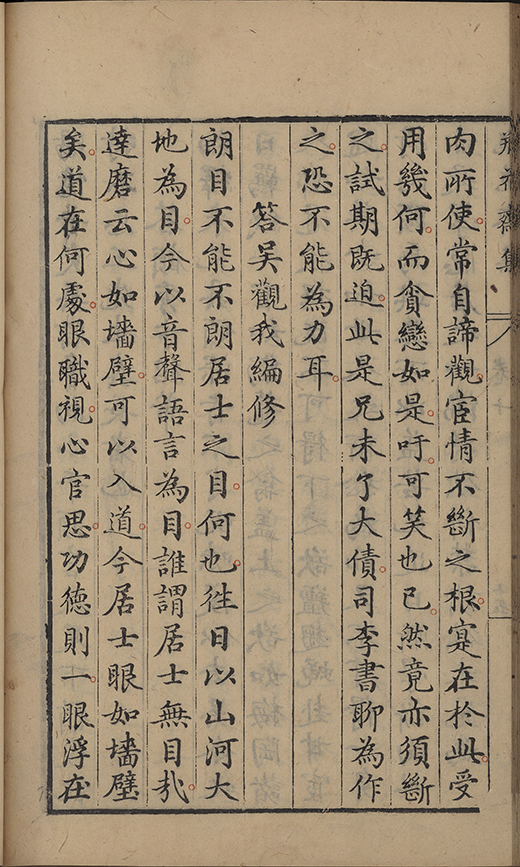 肉所使常自諦觀宦情不斷之根寔在於此受
用幾何而貪戀如是吁可笑也已然竟亦須斷
之試期既迫此是兄未了大債司李書聊為作
之恐不能為力耳
答吴觀我編修
朗目不能不朗居士之目何也徃日以山河大
地為目今以音聲語言為目誰謂居士無目㢤
達磨云心如墻壁可以入道今居士眼如墻壁
矣道在何處眼職視心官思功德則一眼浮在